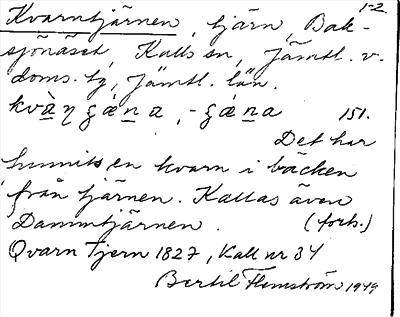 1-2.
Kvarntjärnen, tjärn, Bak-
sjönäset, Kalls sn, Jämtl. v.
doms. tg, Jämtl. län.
151.
Det har
funnits en kvarn i bäcken
från tjärnen. Kallas även
Dammtjärnen. (forts.)
Qvarn Tjern 1827, Kall nr 34
Bertil Flemström 1949